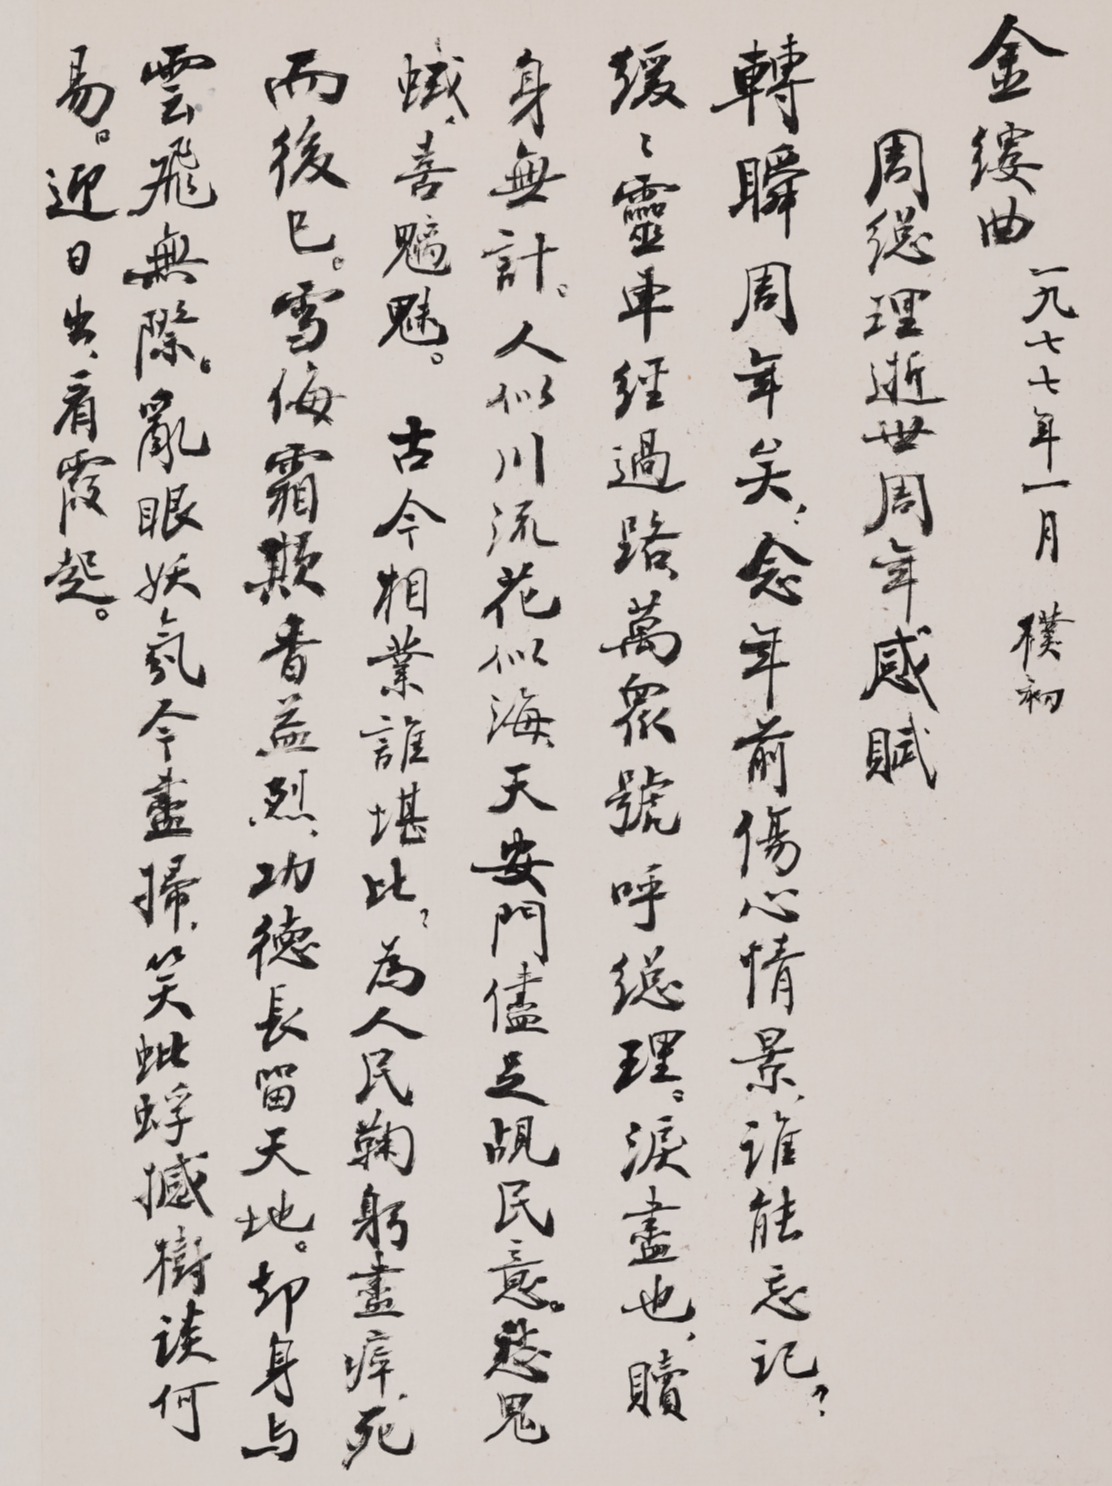 金縷曲
一九七七年一月 樸初
周總理逝世周年感賦
轉瞬周年矣、念年前傷心情景、誰能忘記？
緩〻靈車經過路、萬眾號呼總理。淚盡也、贖
身無計。人似川流花似海、天安門儘足覘民意。愁鬼
蜮、喜魑魅。 古今相業誰堪比？為人民鞠躬盡瘁、死
而後已。雪侮霜欺香益烈、功德長留天地。却身与
雲飛無際。亂眼妖氛今盡掃、笑蚍蜉撼樹談何
易。迎日出、看霞起。